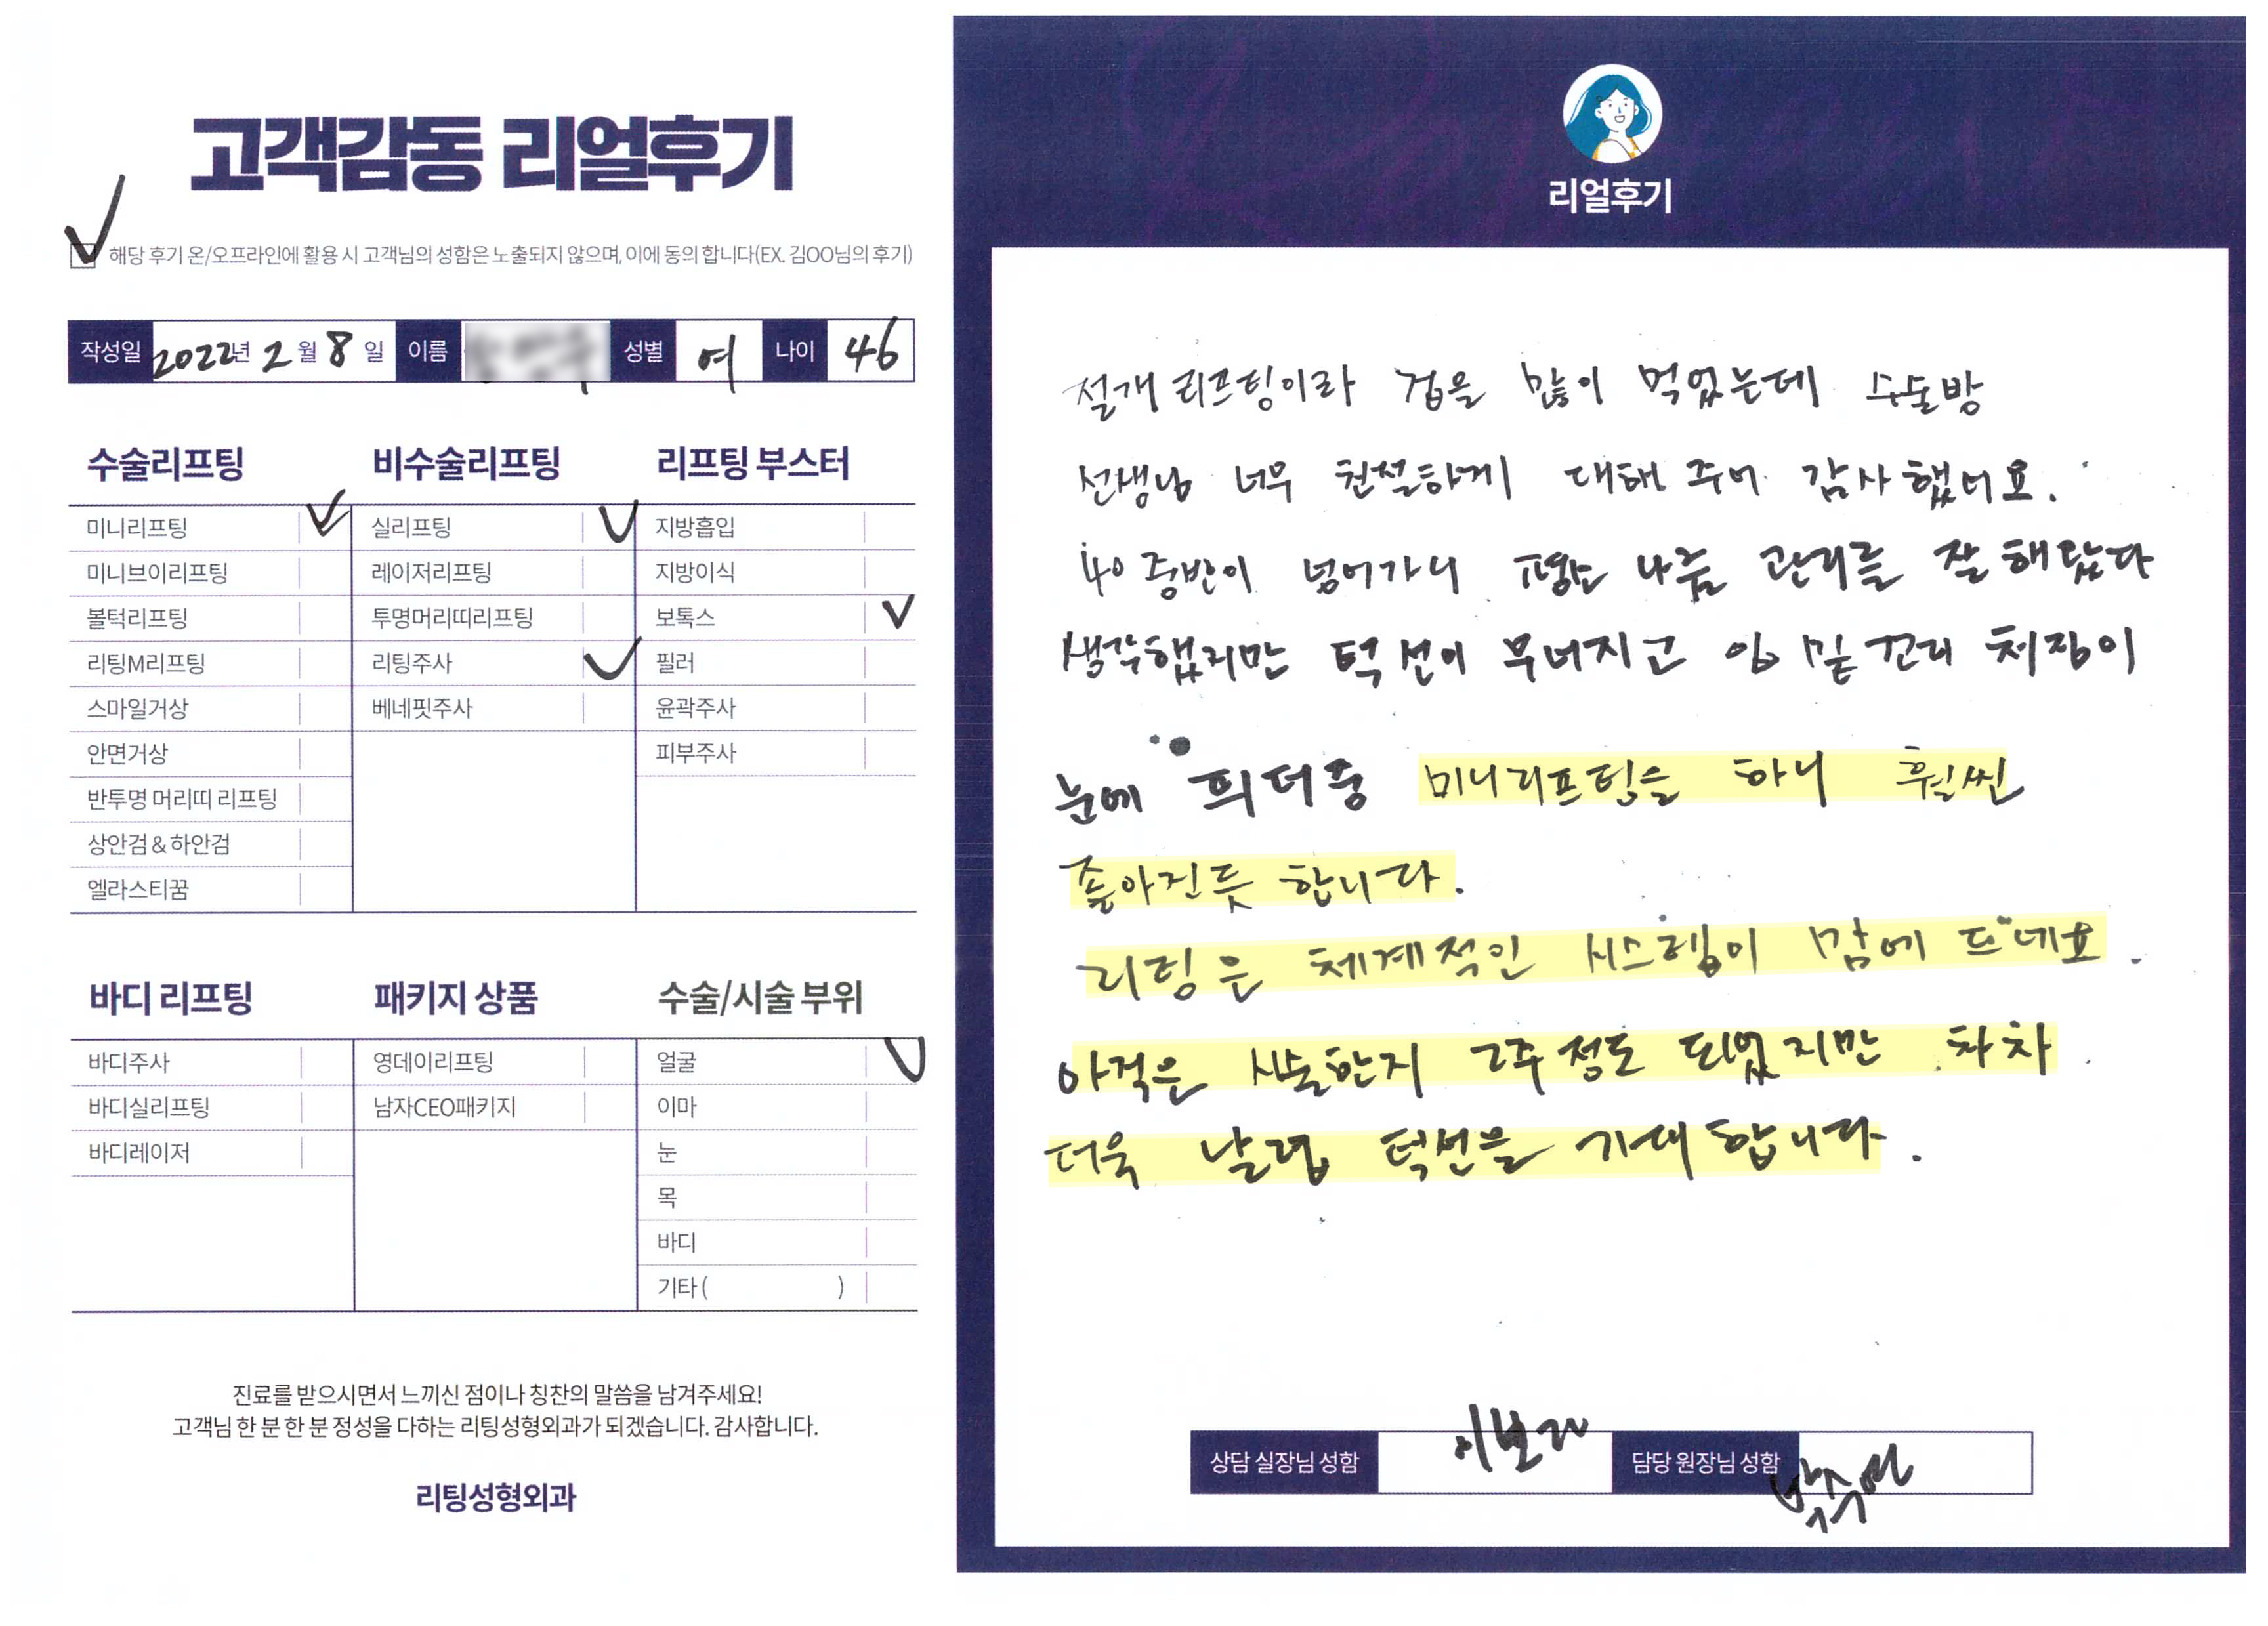 고객감동 리얼후기
해당 후기 온/오프라인에 활용 시 고객님의 성함은 노출되지 않으며, 이에 동의 합니다(EX. 김OO님의 후기)
작성일 2022년 2월 8일 이름 성별 여 나이 46
수술리프팅
미니리프팅
미니브이리프팅
볼턱리프팅
리팅M리프팅
스마일거상
안면거상
반투명 머리띠 리프팅
상안검 & 하안검
엘라스티꿈
비수술리프팅
실리프팅
레이저리프팅
투명머리띠리프팅
리팅주사
베네핏주사
리프팅 부스터
지방흡입
지방이식
보톡스
필러
윤곽주사
피부주사
바디 리프팅
바디주사
바디실리프팅
바디레이저
패키지 상품
영데이리프팅
남자CEO패키지
수술/시술 부위
얼굴
이마
눈
목
바디
기타 ( )
진료를 받으시면서 느끼신 점이나 칭찬의 말씀을 남겨주세요!
고객님 한 분 한 분 정성을 다하는 리팅성형외과가 되겠습니다. 감사합니다.
리팅성형외과
리얼후기
절개 리프팅이라 겁을 많이 먹었는데 수술방
선생님 너무 친절하게 대해 주어 감사했너요.
40 중반이 넘어가니 평소 나름 관리를 잘 해왔다
생각했지만 턱선이 무너지고 입 밑 꼬리 처짐이
눈에 띄더중 미니리프팅을 하니 훨씬
좋아진듯 합니다.
리팅은 체계적인 시스템이 맘에 드네요.
아직은 시술한지 2주 정도 되었지만 차차
더욱 날렵 턱선을 기대합니다.
상담 실장님 성함 이보라 담당 원장님 성함